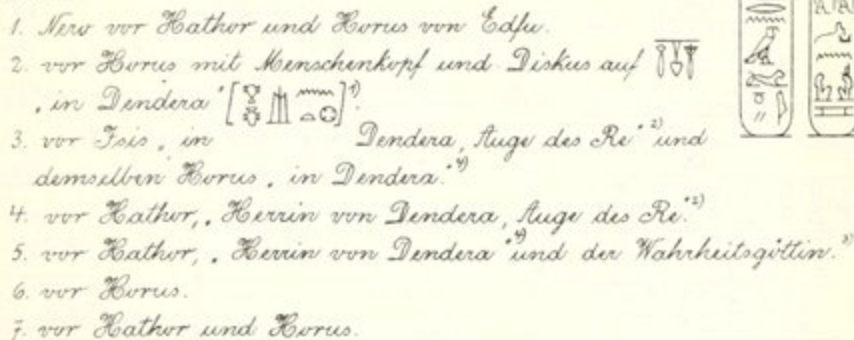 1. Nero vor Hathor und Horus von Edfu.
2. vor Horus mit Menschenkopf und Diskus auf
„in Dendera" [ ]¹⁾.
3. vor Isis, in Dendera, Auge des Re"²⁾ und
demselben Horus „in Dendera."⁴⁾
4. vor Hathor, „Herrin von Dendera, Auge des Re."²⁾
5. vor Hathor, „Herrin von Dendera"⁴⁾ und der Wahrheitsgöttin.³⁾
6. vor Horus.
7. vor Hathor und Horus.